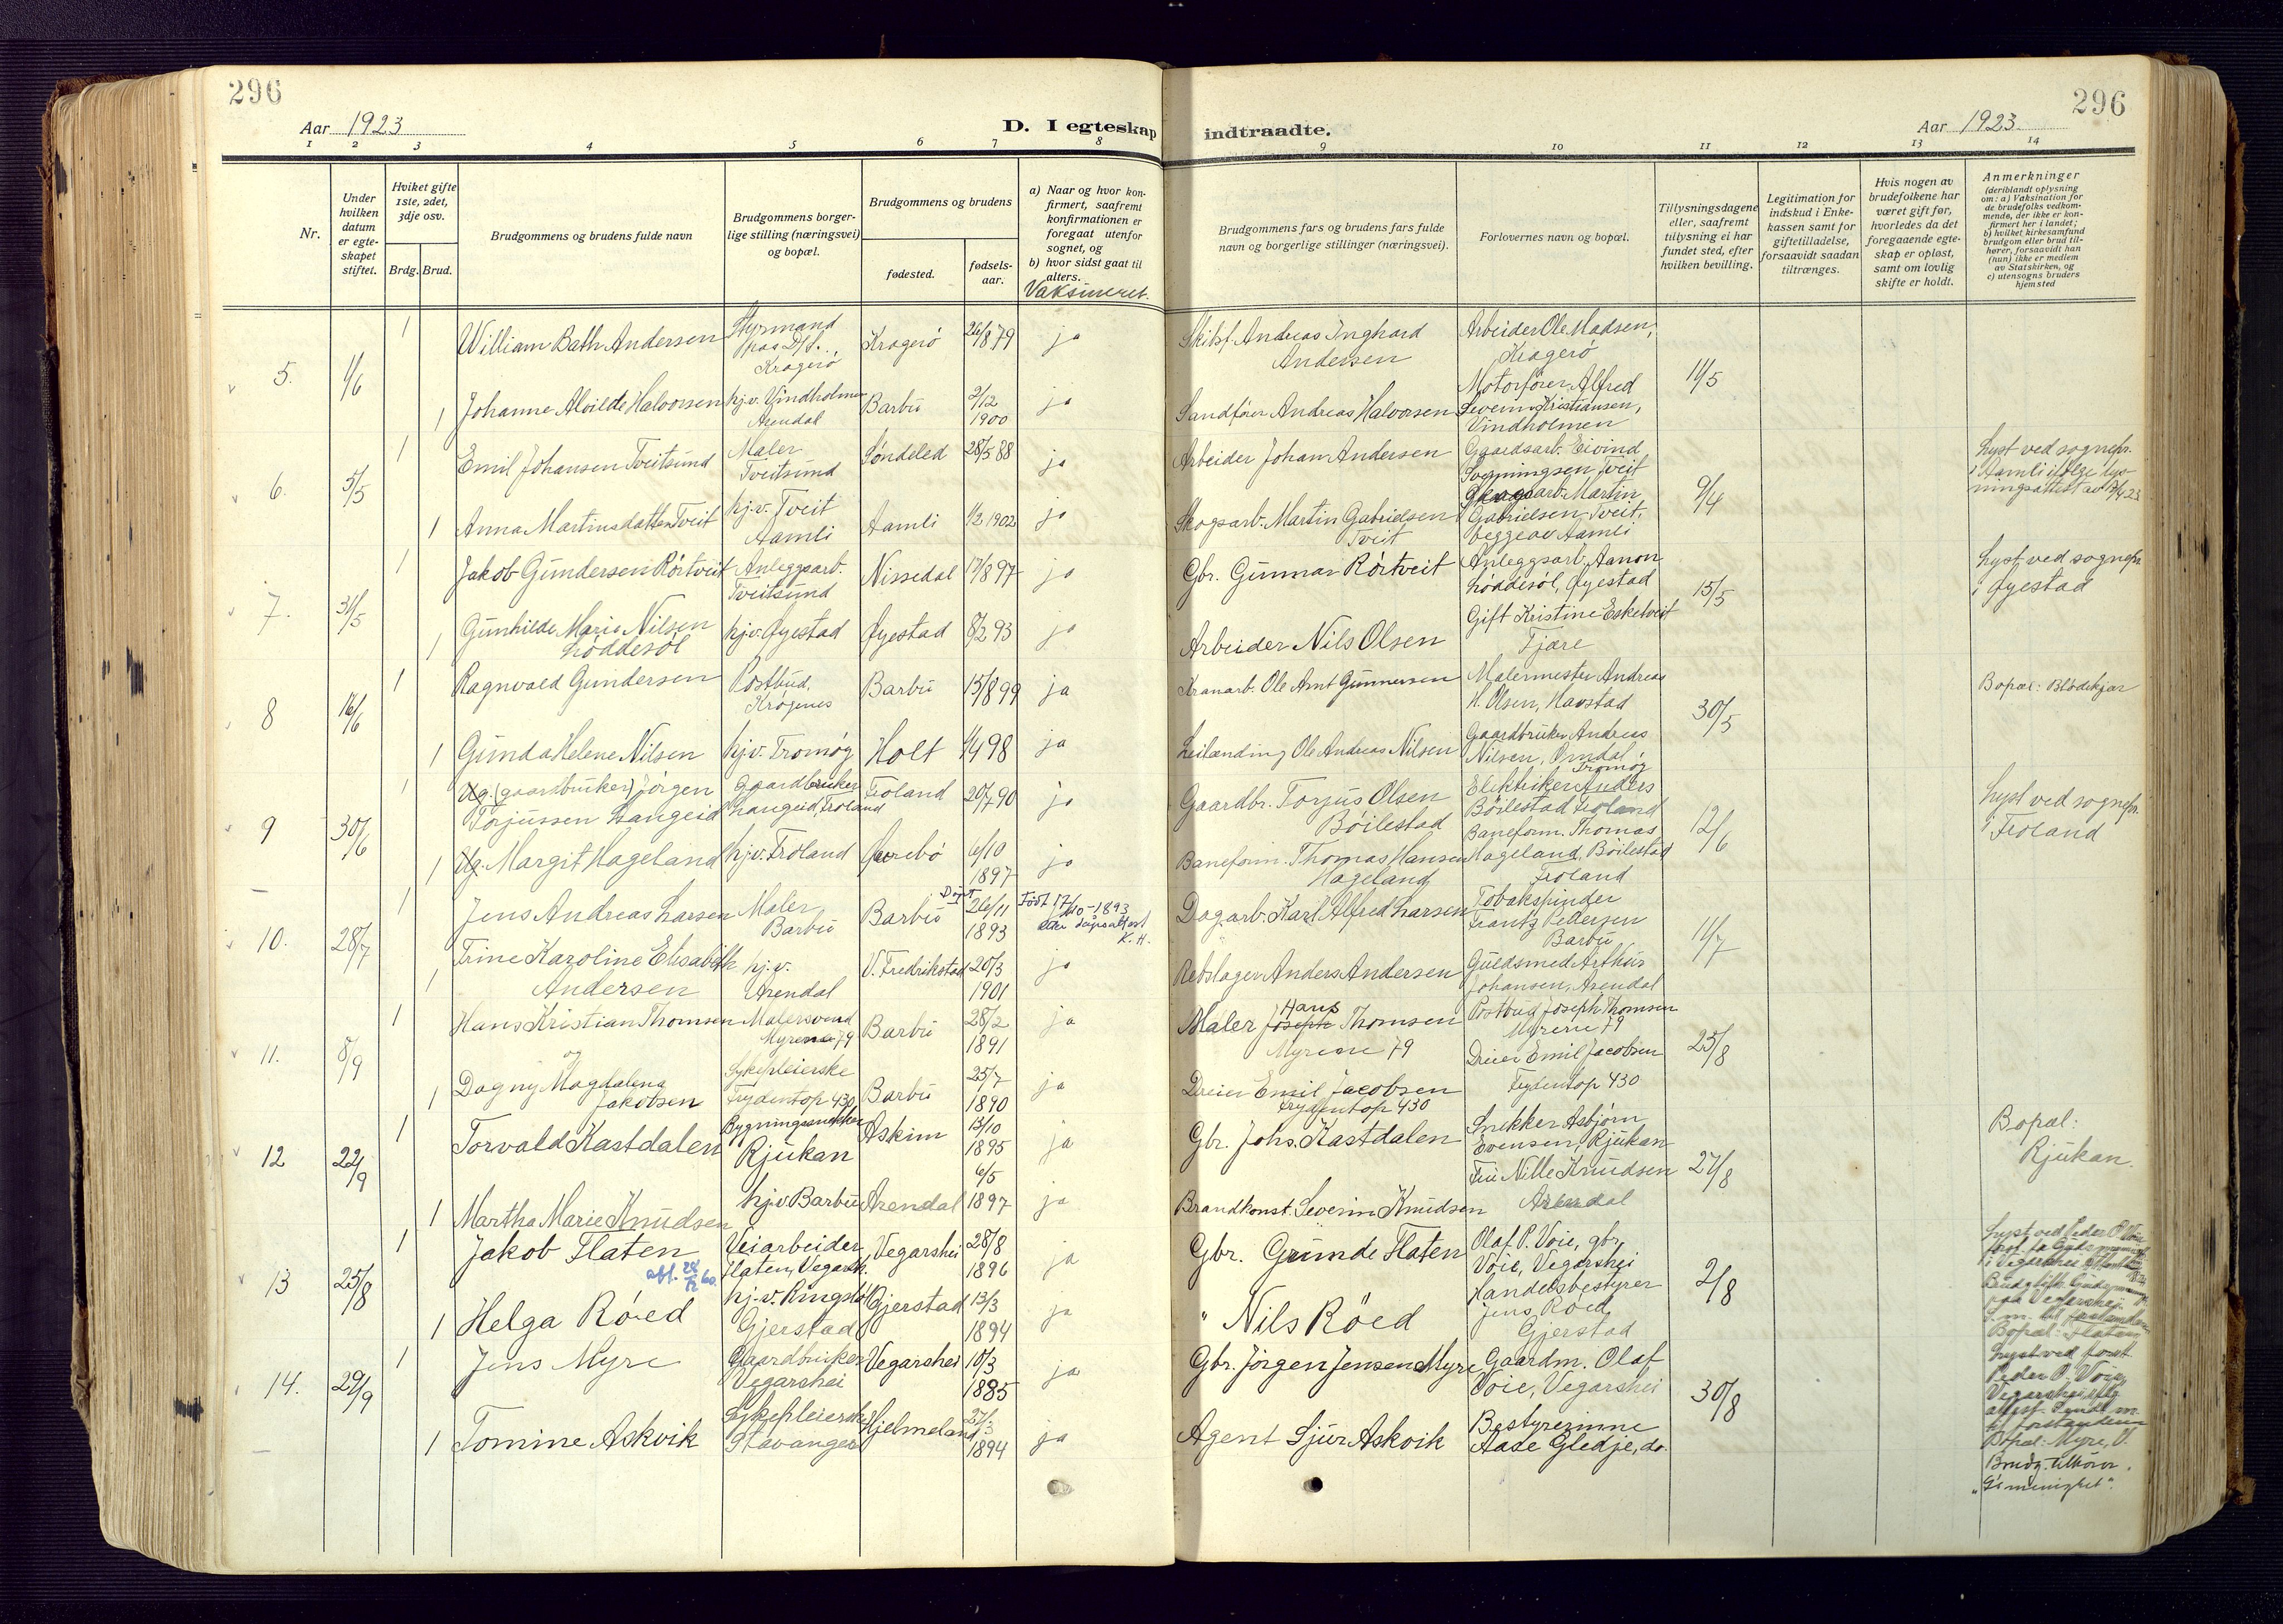 296
Aar 1923
D. I egteskap
1 2 3 4 5 6 7 8
Nr.
Under hvilken datum er egteskapet stiftet.
Hviket gifte 1ste, 2det, 3dje osv.
Brdg. Brud.
Brudgommens og brudens fulde navn
Brudgommens borgerlige stilling (næringsvei) og bopæl.
Brudgommens og brudens
fødested.
fødselsaar.
a) Naar og hvor konfirmert, saafremt konfirmationen er foregaat utenfor sognet, og
b) hvor sidst gaat til alters.
Vaksineret.
5. 1/6
1 William Bath Andersen Styrmand paa D/S. Kragerö Kragerö 26/8 79 ja
1 Johanne Alvilde Halvorsen hj.v. Vindholmen Arendal Barbu 2/12 1900 ja
6. 5/5
1 Emil Johansen Tveitsund Maler Tveitsund Söndeled 28/5 88 ja
1 Anna Martinsdatter Tveit hj.v. Tveit Aamli Aamli 1/2 1902 ja
7. 31/5
1 Jakob Gundersen Rörtveit Anleggsarb. Tveitsund Nissedal 17/8 97 ja
1 Gunhilde Marie Nilsen Löddesöl hjv. Øyestad Øyestad 8/2 93 ja
8 16/6
1 Ragnvald Gundersen Postbud, Krogenes Barbu 15/8 99 ja
1 Gunda Helene Nilsen hj.v. Tromøy Holt 1/4 98 ja
9 30/6
1 Ug. (gaardbruker) Jörgen Torjussen Langeid Gaardbruker Langeid, Froland Froland 20/7 90 ja
1 Ug. Margit Hageland hjv. Froland 6/10 1897 ja
10. 28/7
1 Jens Andreas Larsen Maler Barbu Barbu Döpt 26/11 1893 Födt 17/10-1893 K.H.
1 Trine Karoline Elisabeth Andersen hj.v. Arendal V. Fredrikstad 20/3 1901 ja
11. 8/9
1 Hans Kristian Thomsen Malersvend Myrene 79 Barbu 28/2 1891 ja
og
1 Dagny Magdalena Jakobsen Sykepleierske Frydentop 430 Barbu 25/7 1890 ja
12 22/9
1 Torvald Kastdalen Bygningssnekker Rjukan Askim 13/10 1895 ja
1 Martha Marie Knudsen hjv Barbu Arendal 6/5 1897 ja
13 25/8
1 Jakob Flaten Veiarbeider, Flaten, Vegarsh. Vegarshei 28/8 1896 ja
1 Helga Röed Gjerstad Gjerstad 13/3 1894 ja
14. 29/9
1 Jens Myre Gaardbruker Vegarshei Vegarshei 10/3 1885 ja
1 Tomine Askvik Sykepleierske Stavanger Hjelmeland 27/3 1894 ja
indtraadte.
Aar 1923.
296
9 10 11 12 13 14
Brudgommens fars og brudens fars fulde navn og borgerlige stillinger (næringsvei).
Forlovernes navn og bopæl.
Tillysningsdagene eller, saafremt tillysning ei har fundet sted, efter hvilken bevilling.
Legitimation for indskud i Enkekassen samt for giftetilladelse, forsaavidt saadan tiltrænges.
Hvis nogen av brudefolkene har været gift før, hvorledes da det foregaaende egteskap er opløst, samt om lovlig skifte er holdt.
Anmerkninger
(deriblandt oplysning om: a) Vaksination for de brudefolks vedkommende, der ikke er konfirmert her i landet; b) hvilket kirkesamfund brudgom eller brud tilhører, forsaavidt han (hun) ikke er medlem av Statskirken, og c) utensogns bruders hjemsted
Skibsf. Andreas Inghard Andersen Arbeider Ole Madsen, Kragerö 11/5
Sandförer Andreas Halvorsen Motorförer Alfred Severin Kristiansen, Vindholmen
Arbeider Johan Andersen Gaardsarb. Eivind Tveit 9/4 Lyst ved sognepr. i Aamli ifölge lysningsattest av
Skogsarb. Martin Gabrielsen Tveit Skogsarb. Martin Gabrielsen Tveit, begge av Aamli
Gbr. Gunnar Rörtveit Anleggsarb. Aanon Löddesöl, Øyestad 15/5 Lyst ved sognepr. i Øyestad
Arbeider Nils Olsen Gift Kristine Eskelveit Fjære
Kranarb. Ole Amt Gunnersen Malermester Andreas H. Olsen, Havstad 30/5 Bopæl: Blødekjær
Leilænding Ole Andreas Nilsen Gaardbruker Andreas Nilsen, Omdal, Tromøy
Gaardbr. Torjus Olsen Böilestad Elektriker Anders Böilestad Froland 12/6 Lyst ved sognepr. i Froland
Baneform. Thomas Hansen Hageland Baneform. Thomas Hageland, Böilestad Froland
Dagarb. Karl Alfred Larsen Tobakspinder Frantz Pedersen Barbu 11/7
Rebslager Anders Andersen Guldsmed Arthur Johansen, Arendal
Maler Hans Thomsen Myrene 79 Postbud Joseph Thomsen Myrene 79 25/8
Dreier Emil Jacobsen Frydentop 430 Dreier Emil Jacobsen Frydentop 430
Gbr. Johs. Kastdalen Snekker Asbjörn Evensen, Rjukan 27/8 Bopæl: Rjukan.
Brandkonst. Severin Knudsen Fru Nille Knudsen Arendal
Gbr. Gunde Flaten Olaf P. Voie, gbr. Voie, Vegarshei 2/8
" Nils Röed Handelsbestyrer Jens Röed, Gjerstad Bopæl: Flaten
Gbr. Jörgen Jensen Myre Gaardm. Olaf Voie, Vegarshei 30/8 Lyst ved forst. Peder P. Voie,
Agent Sjur Askvik Bestyrerinne Aase Gledje, do. Bopæl: Myre, V.